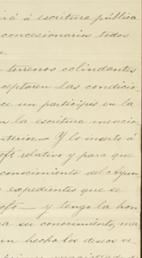 á escritura pública
concesionarios todos
terrenos colindantes
aceptaren las condicio
ce un participes en la
en la escritura mencio
anterior. - Y lo inserto á
relativo y para que
conocimiento del Ayun
expedientes que se
- y tengo la hon
a su conocimiento, ma
un hecho los deseos